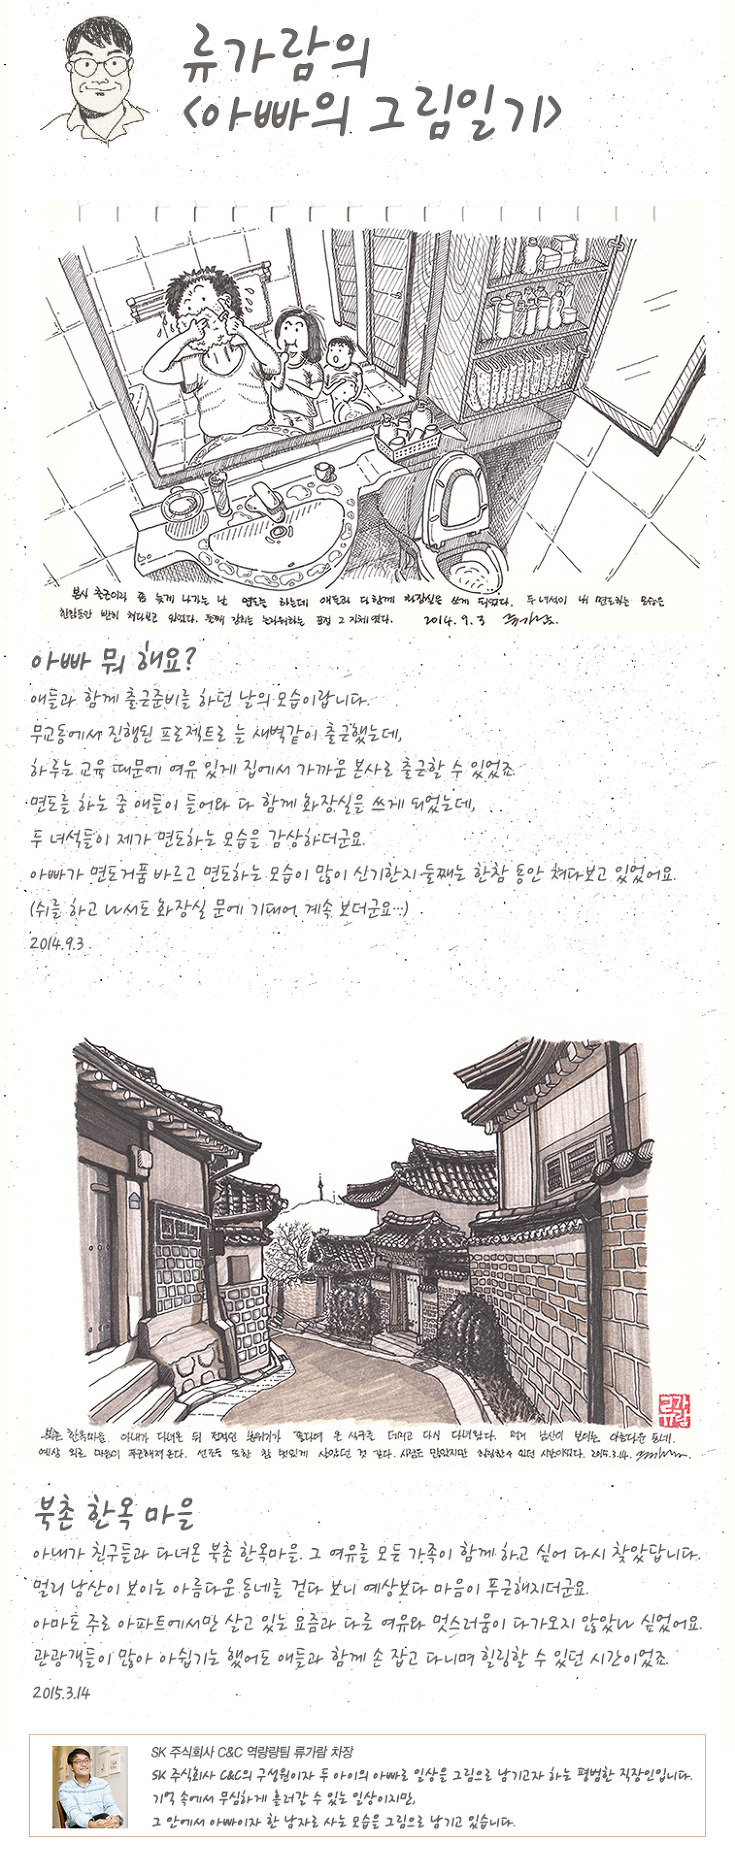 류가람의
<아빠의 그림일기>
본사 출근이라 좀 늦게 나가는 날 면도를 하는데 애들과 다함께 화장실을 쓰게 되었다. 두 녀석이 내 면도하는 모습을
한참동안 빤히 쳐다보고 있었다. 둘째 강희는 놀라워하는 표정 그 자체였다. 2014.9.3
아빠 뭐 해요?
애들과 함께 출근준비를 하던 날의 모습이랍니다.
무교동에서 진행된 프로젝트로 늘 새벽같이 출근했는데,
하루는 교육 때문에 여유 있게 집에서 가까운 본사로 출근할 수 있었죠.
면도를 하는 중 애들이 들어와 다 함께 화장실을 쓰게 되었는데,
두 녀석들이 제가 면도하는 모습을 감상하더군요.
아빠가 면도거품 바르고 면도하는 모습이 많이 신기한지 둘째는 한참 동안 쳐다보고 있었어요.
(쉬를 하고 나서도 화장실 문에 기대어 계속 보더군요…)
2014.9.3
북촌 한옥마을. 아내가 다녀온 뒤 전적인 분위기가 좋다며 온 식구를 데리고 다시 다녀왔다. 멀리 남산이 보이는 아름다운 동네.
예상 외로 마음이 푸근해져온다. 선조들 또한 참 멋있게 살았던 것 같다. 사람은 많았지만 힐링할 수 있던 시간이었다. 2015.3.14.
류가람
북촌 한옥 마을
아내가 친구들과 다녀온 북촌 한옥마을. 그 여유를 모든 가족이 함께 하고 싶어 다시 찾았답니다.
멀리 남산이 보이는 아름다운 동네를 걷다 보니 예상보다 마음이 푸근해지더군요.
아마도 주로 아파트에서만 살고 있는 요즘과 다른 여유와 멋스러움이 다가오지 않았나 싶었어요.
관광객들이 많아 아쉽기는 했어도 애들과 함께 손 잡고 다니며 힐링할 수 있던 시간이었죠.
2015.3.14
SK 주식회사 C&C 역량팀 류가람 차장
SK 주식회사 C&C의 구성원이자 두 아이의 아빠로 일상을 그림으로 남기고자 하는 평범한 직장인입니다.
기억 속에서 무심하게 흘러갈 수 있는 일상이지만,
그 안에서 아빠이자 한 남자로 사는 모습을 그림으로 남기고 있습니다.